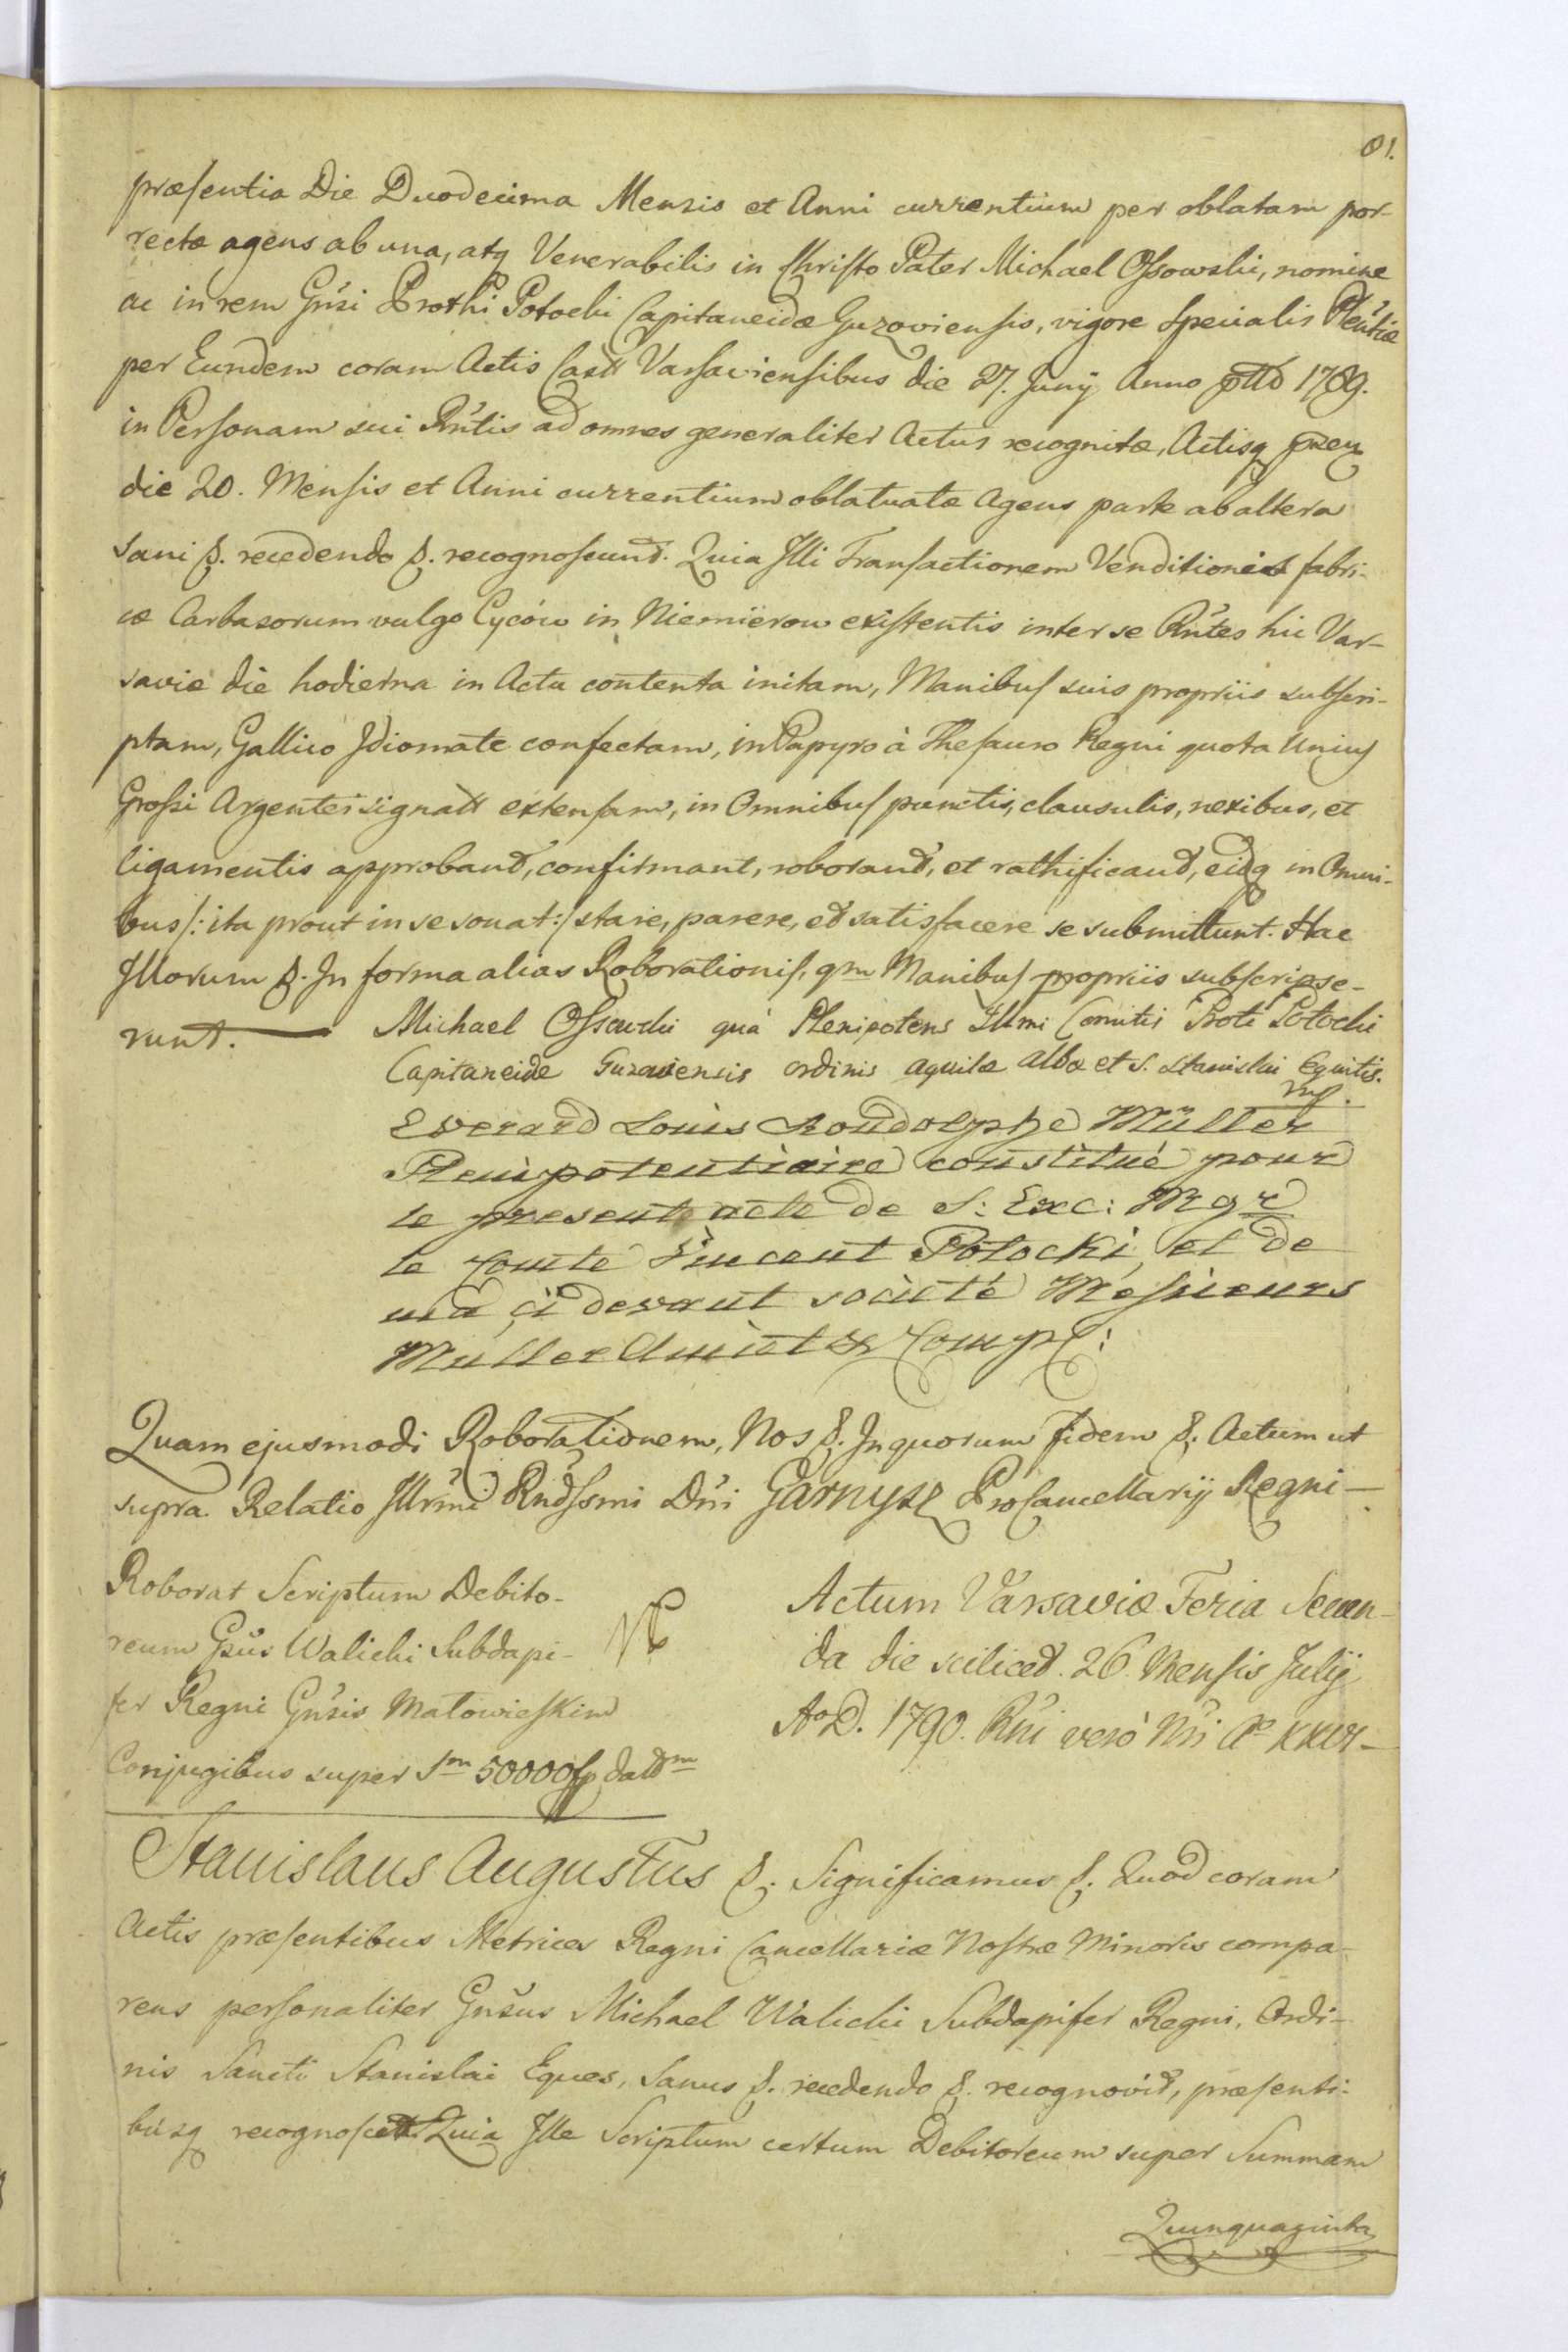 81.
præsentia Die Duodecima Mensis et Anni currentium per oblatam por-
rectæ agens ab una, atq Venerabilis in Christo Pater Michael Ossowski, nomine
ac in rem Gnsi Prothi Potocki Capitaneidæ Guzoviensis, vigore Specialis Plentiæ
per Eundem coram Actis Castt Varsaviensibus die 27. Junij Anno 1789.
in Personam sui Rntis ad omnes generaliter Actus recognitæ, Actisq
die 20. Mensis et Anni currentium oblatuatæ Agens parte ab altera
Sani &. recedendo &. recognoscunt. Quia Illi Transactionem Venditionis fabri-
cæ Carbasorum vulgo Cyców in Niemierow existentis inter se Rntes hic Var-
saviæ die hodierna in Actu contenta initam, Manibus suis propriis subscri-
ptam, Gallico Idiomate confectam, in Papyro à Thesauro Regni quota Unius
Grossi Argentei signatt extensam, in Omnibus punctis, clausulis, nexibus, et
ligamentis approband, confirmant, roborand, et rathificand, eidq in Omni-
bus /: ita prout in se sonat :/ stare, parere, et satisfacere se submittunt. Hac
Illorum &. In forma alias Roborationis, qm Manibus propriis subscripse-
runt. Michael Ossowski quà Plenipotens Illmi Comitis Proti Potocki
Capitaneide Guzoviensis ordinis aquilæ albæ et S. Stanislai Equitis.
mp.
Everard Louis Roudolphe Müller
Plenipotentiaire constitué pour
le present acte de S: Exc: Mgr
le Comte Vincent Potocki, et de
ma ci devant societé Messieurs
Muller Amiet & Comp:
Quam ejusmodi Roborationem, Nos &. In quorum fidem &. Actum ut
supra. Relatio Illrmi Rndssmi Dni Garnysz ProCancellarij Regni
Roborat Scriptum Debito-
reum Gsus Walicki Subdapi-
fer Regni Gnsis Małowieskim
Conjugibus super Sm 50000 fp datam
Actum Varsaviæ Feria Secun-
da die scilicet. 26 Mensis Julij
Ao D. 1790. Rni verò Nri Ao XXVI
Stanislaus Augustus &. Significamus &. Quod coram
Actis præsentibus Metrices Regni Cancellariæ Nostræ Minoris compa-
rens personaliter Gnsus Michael Walicki Subdapifer Regni, Ordi-
nis Sancti Stanislai Eques, Sanus &. recedendo &. recognovit, præsenti-
busq recognoscit. Quia Ille Scriptum certum Debitoreum super Summam
Quinquaginta